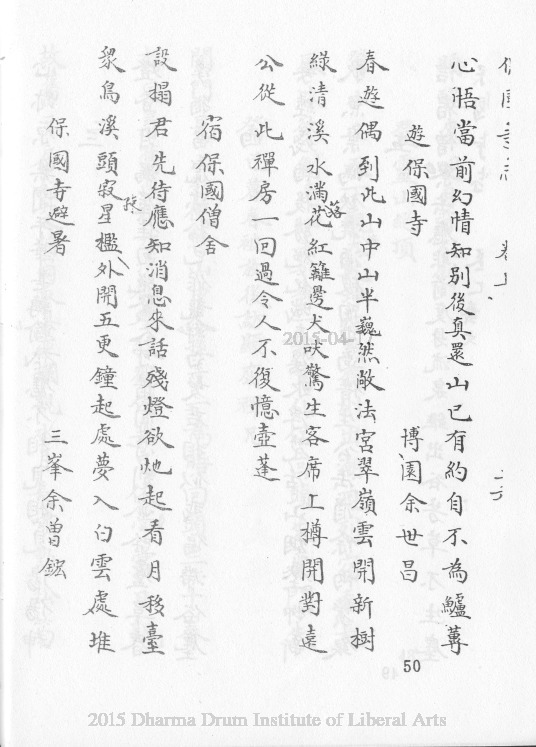 保國寺志 卷上
心悟當前幻情知別後真還山已有約自不為鱸蓴
遊保國寺 博園余世昌
春遊偶到此山中山半巍然敞法宮翠嶺雲開新樹
綠清溪水滿落花紅籬邊犬吠驚生客席上樽開對遠
公從此禪房一回過令人不復憶壺蓬
宿保國僧舍
設榻君先待應知消息來話殘燈欲灺起看月移臺
眾鳥溪頭寂星檻外開五更鐘起處夢入白雲處堆
保國寺避暑 三峯余曾鋐
50
2015-04-
2015 Dharma Drum Institute of Liberal Arts